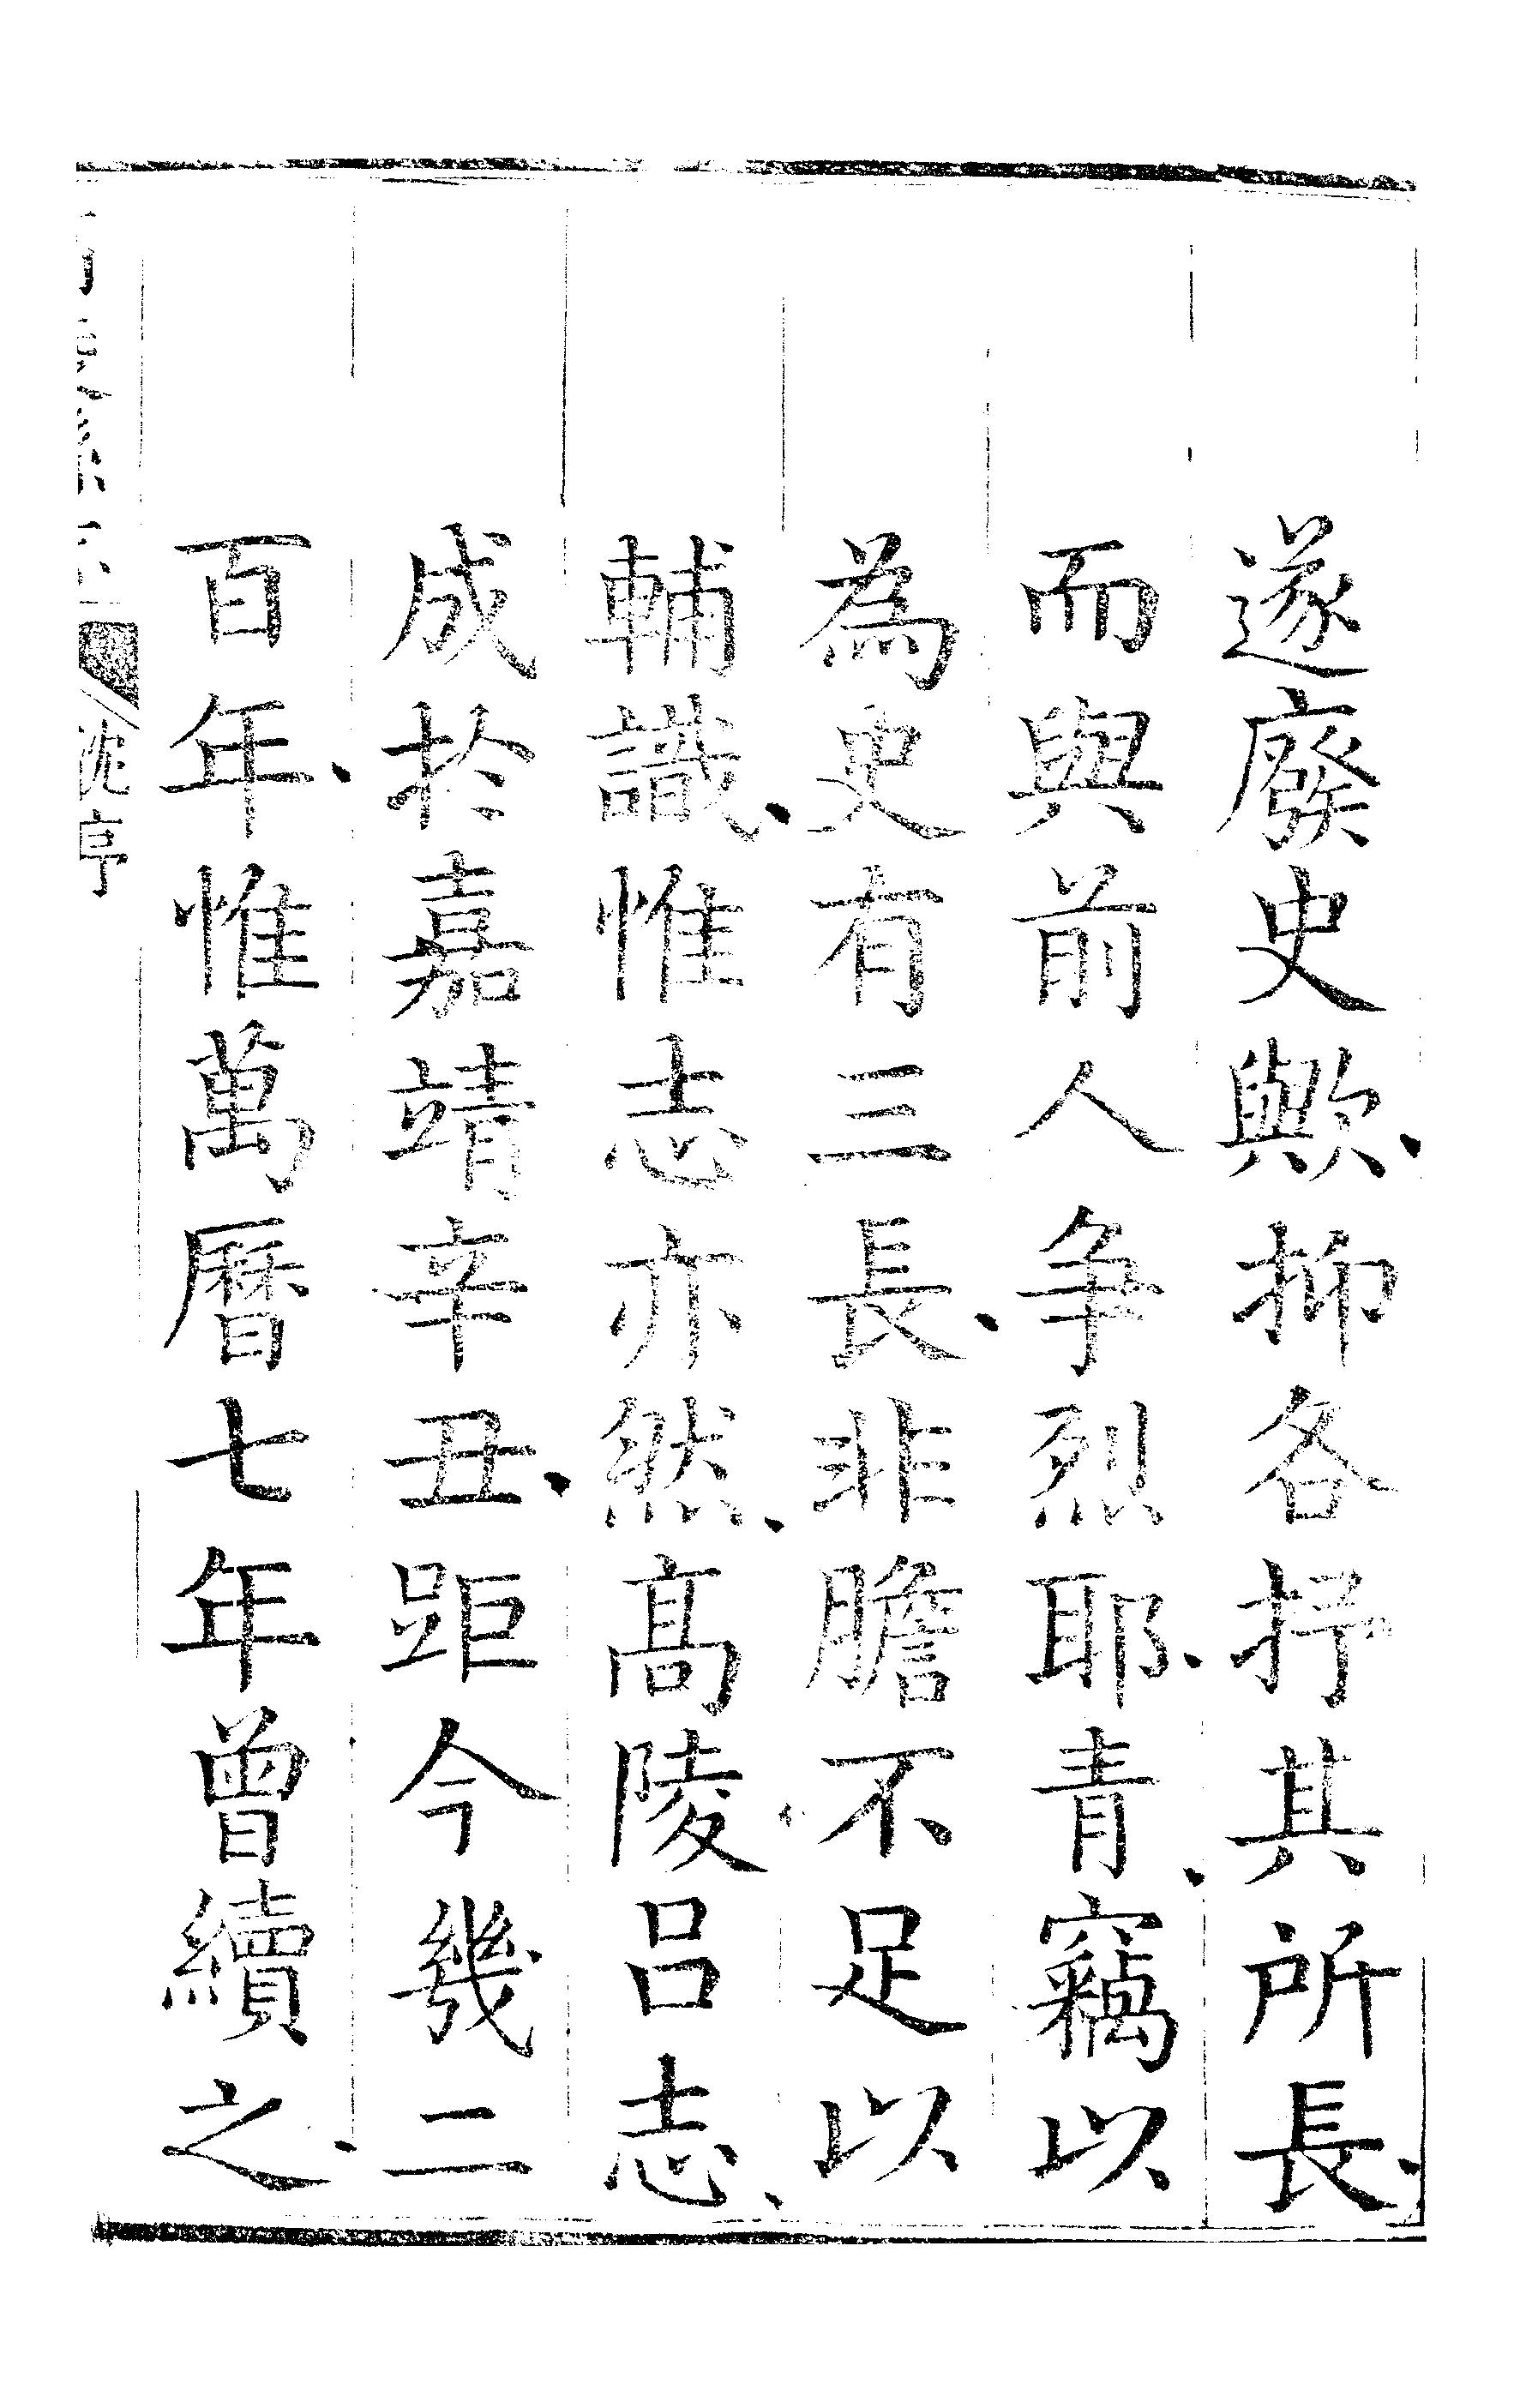 遂廢史歟、抑各抒其所長、
而與前人争烈耶、青、竊以
為史有三長、非膽不足以
輔識、惟志亦然、髙陵吕志、
成於嘉靖辛丑、距今幾二
百年、惟萬曆七年曾續之、
沈序